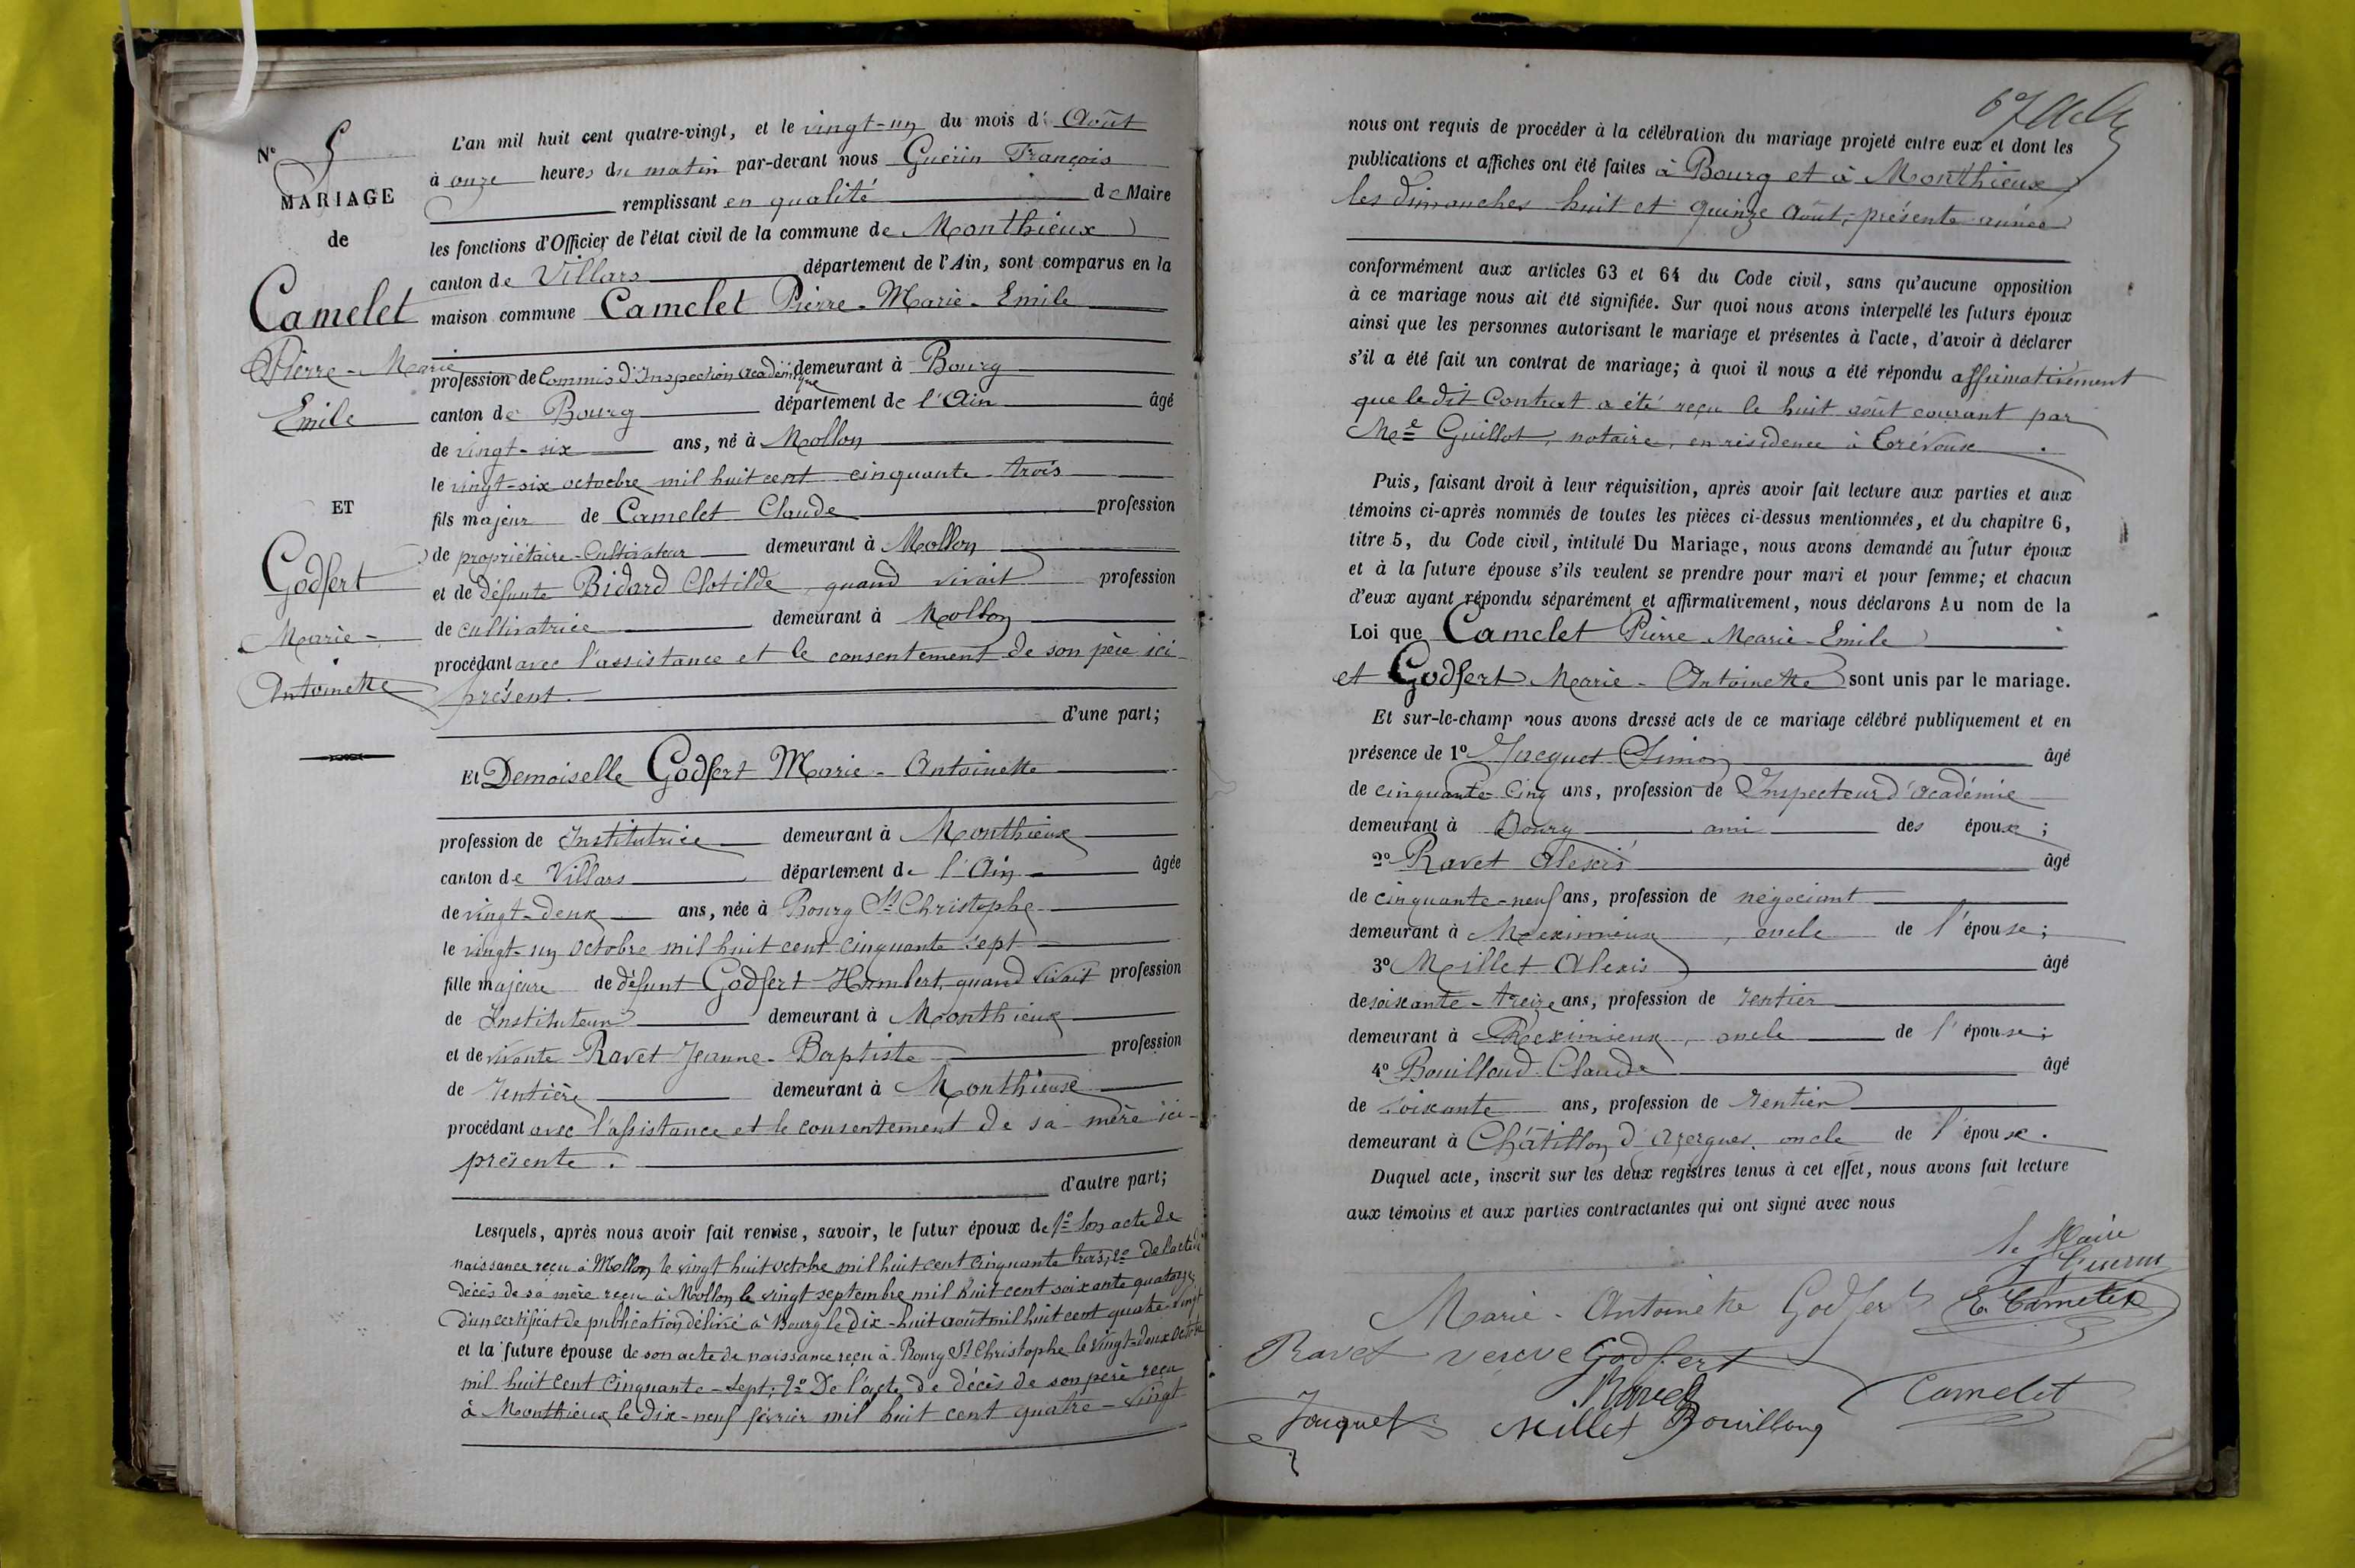 N° 5
MARIAGE
de
Camelet
Pierre-Marie
Emile
ET
Godfert
Marie-
Antoinette
L'an mil huit cent quatre-vingt, et le vingt-un du mois d' Août
à onze heures du matin par-devant nous Guérin François
remplissant en qualité de Maire
les fonctions d'Officier de l'état civil de la commune de Monthieux
canton de Villars département de l'Ain, sont comparus en la
maison commune Camelet Pierre-Marie-Emile
profession de Commis d'Inspection académique demeurant à Bourg
canton de Bourg département de l'Ain âgé
de vingt-six ans, né à Mollon
le vingt-six octobre mil huit cent cinquante-trois
fils majeur de Camelet Claude profession
de propriétaire-Cultivateur demeurant à Mollon
et de défunte Bidard Clotilde quand vivait profession
de cultivatrice demeurant à Mollon
procédant avec l'assistance et le consentement de son père ici-
présent.
d'une part;
Et Demoiselle Godfert Marie-Antoinette
profession de Institutrice demeurant à Monthieux
canton de Villars département de l'Ain âgée
de vingt-deux ans, née à Bourg St Christophe
le vingt-un octobre mil huit cent cinquante sept
fille majeure de défunt Godfert Humbert, quand vivait profession
de Instituteur demeurant à Monthieux
et de vivante Ravet Jeanne-Baptiste profession
de rentière demeurant à Monthieux
procédant avec l'assistance et le consentement de sa mère ici-
présente.
d'autre part;
Lesquels, après nous avoir fait remise, savoir, le futur époux de 1° Son acte de
naissance reçu à Mollon le vingt huit octobre mil huit cent cinquante trois; 2° De l'acte de
décès de sa mère reçu à Mollon le vingt septembre mil huit cent soixante quatorze
D'un certificat de publication délivré à Bourg le dix-huit août mil huit cent quatre-vingt
et la future épouse de son acte de naissance reçu à Bourg St Christophe le vingt-deux octobre
mil huit cent cinquante-sept; 2° De l'acte de décès de son père reçu
à Monthieux le dix-neuf février mil huit cent quatre-vingt
nous ont requis de procéder à la célébration du mariage projeté entre eux et dont les
publications et affiches ont été faites à Bourg et à Monthieux
les dimanches huit et quinze août, présente année
conformément aux articles 63 et 64 du Code civil, sans qu'aucune opposition
à ce mariage nous ait été signifiée. Sur quoi nous avons interpellé les futurs époux
ainsi que les personnes autorisant le mariage et présentes à l'acte, d'avoir à déclarer
s'il a été fait un contrat de mariage; à quoi il nous a été répondu affirmativement
que le dit Contrat a été reçu le huit août courant par
Me Guillot, notaire, en résidence à Trévoux.
Puis, faisant droit à leur réquisition, après avoir fait lecture aux parties et aux
témoins ci-après nommés de toutes les pièces ci-dessus mentionnées, et du chapitre 6,
titre 5, du Code civil, intitulé Du Mariage, nous avons demandé au futur époux
et à la future épouse s'ils veulent se prendre pour mari et pour femme; et chacun
d'eux ayant répondu séparément et affirmativement, nous déclarons Au nom de la
Loi que Camelet Pierre-Marie-Emile
et Godfert Marie-Antoinette sont unis par le mariage.
Et sur-le-champ nous avons dressé acte de ce mariage célébré publiquement et en
présence de 1° Jacquet Simon âgé
de cinquante-cinq ans, profession de Inspecteur d'académie
demeurant à Bourg ami des époux;
2° Ravet Alexis âgé
de cinquante-neuf ans, profession de négociant
demeurant à Meximieux, oncle de l'épouse;
3° Millet Alexis âgé
de soixante-treize ans, profession de rentier
demeurant à Meximieux, oncle de l'épouse;
4° Bouilloud Claude âgé
de soixante ans, profession de rentier
demeurant à Châtillon d'Azergues, oncle de l'épouse.
Duquel acte, inscrit sur les deux registres tenus à cet effet, nous avons fait lecture
aux témoins et aux parties contractantes qui ont signé avec nous
le Maire
Guerin
Marie-Antoinette Godfert E. Camelet
Ravet veuve Godfert
Ravet Camelet
Jacquet Millet Bouilloud